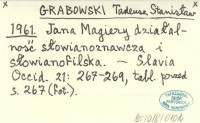 GRABOWSKI Tadeusz Stanisław
1961. Jana Magiery działal-
ność słowianoznawcza i
słowianofilska. — Slavia
Occid. 21: 267-269, tabl. przed
s. 267 (fot.).